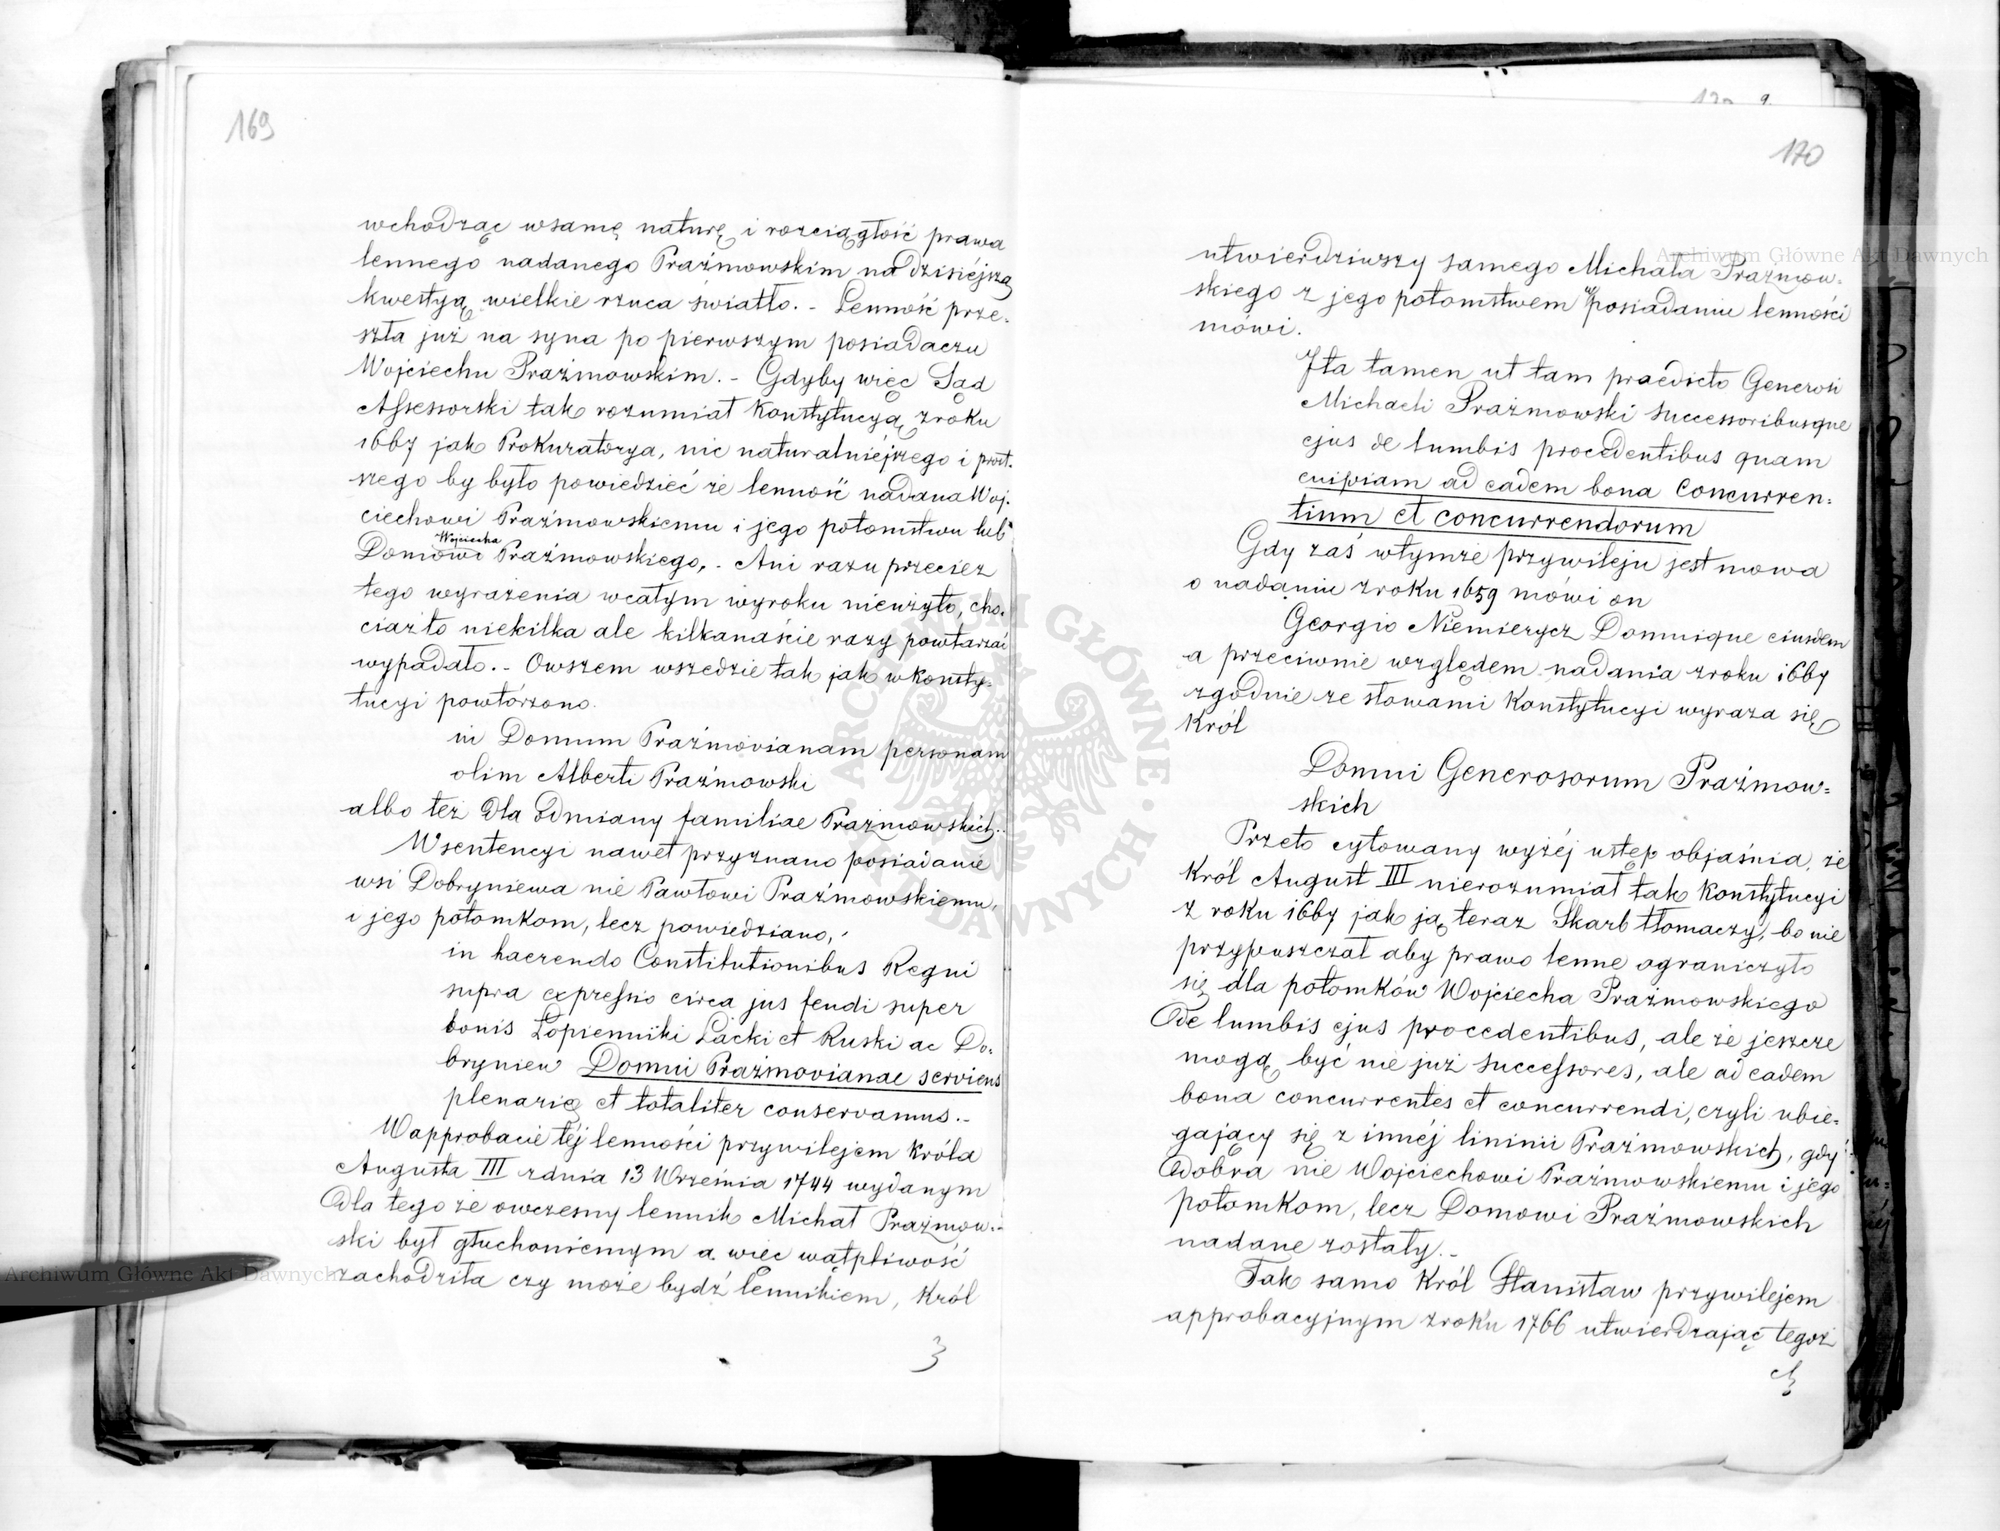 169
wchodząc wsamę naturę i rozciągłość prawa
lennego nadanego Prażmowskim na dzisiéjszą
kwestyą wielkie rzuca światło. - Lenność prze-
szła już na syna po pierwszym posiadaczu
Wojciechu Prażmowskim. - Gdyby więc Sąd
Assessorski tak rozumiał Konstytucyą zroku
1667 jak Prokuratorya, nic naturalniéjszego i prost-
szego by było powiedzieć że lenność nadana Woj-
ciechowi Prażmowskiemu i jego potomstwu lub
Wojciecha
Domowi Prażmowskiego, - Ani razu przecież
tego wyrażenia wcałym wyroku nieużyto, cho-
ciaż to niekilka ale kilkanaście razy powtarzać
wypadało. - Owszem wszędzie tak jak w Konsty-
tucyi powtórzono.
in Domum Prażmovianam personam
olim Alberti Prażmowski
albo też dla odmiany familiae Prażmowskich.
Wsentencyi nawet przyznano posiadanie
wsi Dobryniewa nie Pawłowi Prażmowskiemu,
i jego potomkom, lecz powiedziano,
in haerendo Constitutionibus Regni
supra expressio circa jus feudi super
bonis Łopienniki Lacki et Ruski ac Do-
bryniew Domui Prażmovianae serviens
plenarie et totaliter conservamus. -
Wapprobacie téj lenności przywilejem Króla
Augusta III zdnia 13 Września 1744 wydanym
dla tego że owczesny lennik Michał Prażmow-
ski był głuchoniemym a więc wątpliwość
zachodziła czy może bydź lennikiem, Król
3
170
utwierdziwszy samego Michała Prażmow-
skiego z jego potomstwem w posiadaniu lenności
mówi.
Ita tamen ut tam praedicto Generosi
Michaeli Prażmowski successoribusque
ejus de lumbis procedentibus quam
cuipiam ad eadem bona concurren-
tium et concurrendorum
Gdy zaś wtymże przywileju jest mowa
o nadaniu zroku 1659 mówi on
Georgio Niemierycz Domuique eiusdem
a przeciwnie względem nadania zroku 1667
zgodnie ze słowami Konstytucyi wyraża się
Król
Domui Generosorum Prażmow-
skich
Przeto cytowany wyżéj ustęp objaśnia, że
Król August III nierozumiał tak Konstytucyi
z roku 1667 jak ją teraz Skarb tłomaczy, bo nie
przypuszczał aby prawo lenne ograniczyło
się dla potomków Wojciecha Prażmowskiego
de lumbis ejus procedentibus, ale że jeszcze
mogą być nie już successores, ale ad eadem
bona concurrentes et concurrendi, czyli ubie-
gający się z innéj lininii Prażmowskich, gdy
dobra nie Wojciechowi Prażmowskiemu i jego
potomkom, lecz Domowi Prażmowskich
nadane zostały. -
Tak samo Król Stanisław przywilejem
approbacyjnym zroku 1766 utwierdzając tegoż
Archiwum Główne Akt Dawnych
Archiwum Główne Akt Dawnych
ARCHIWUM GŁÓWNE AKT DAWNYCH